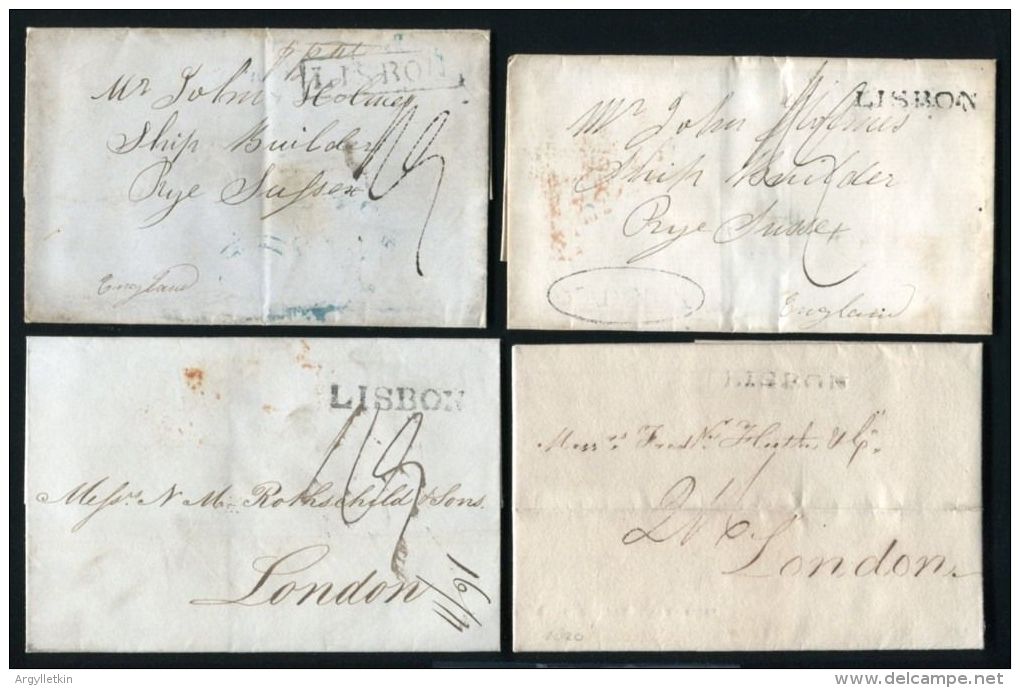 LISBON
Mr John Holmes
Ship Builder
Rye Sussex
England
LISBON
Mr John Holmes
Ship Builder
Rye Sussex
England
LISBON
Messrs N M Rothschild & Sons.
London
LISBON
Messrs Fredk Huth & Co.
London
Argylletkin
delcampe.net